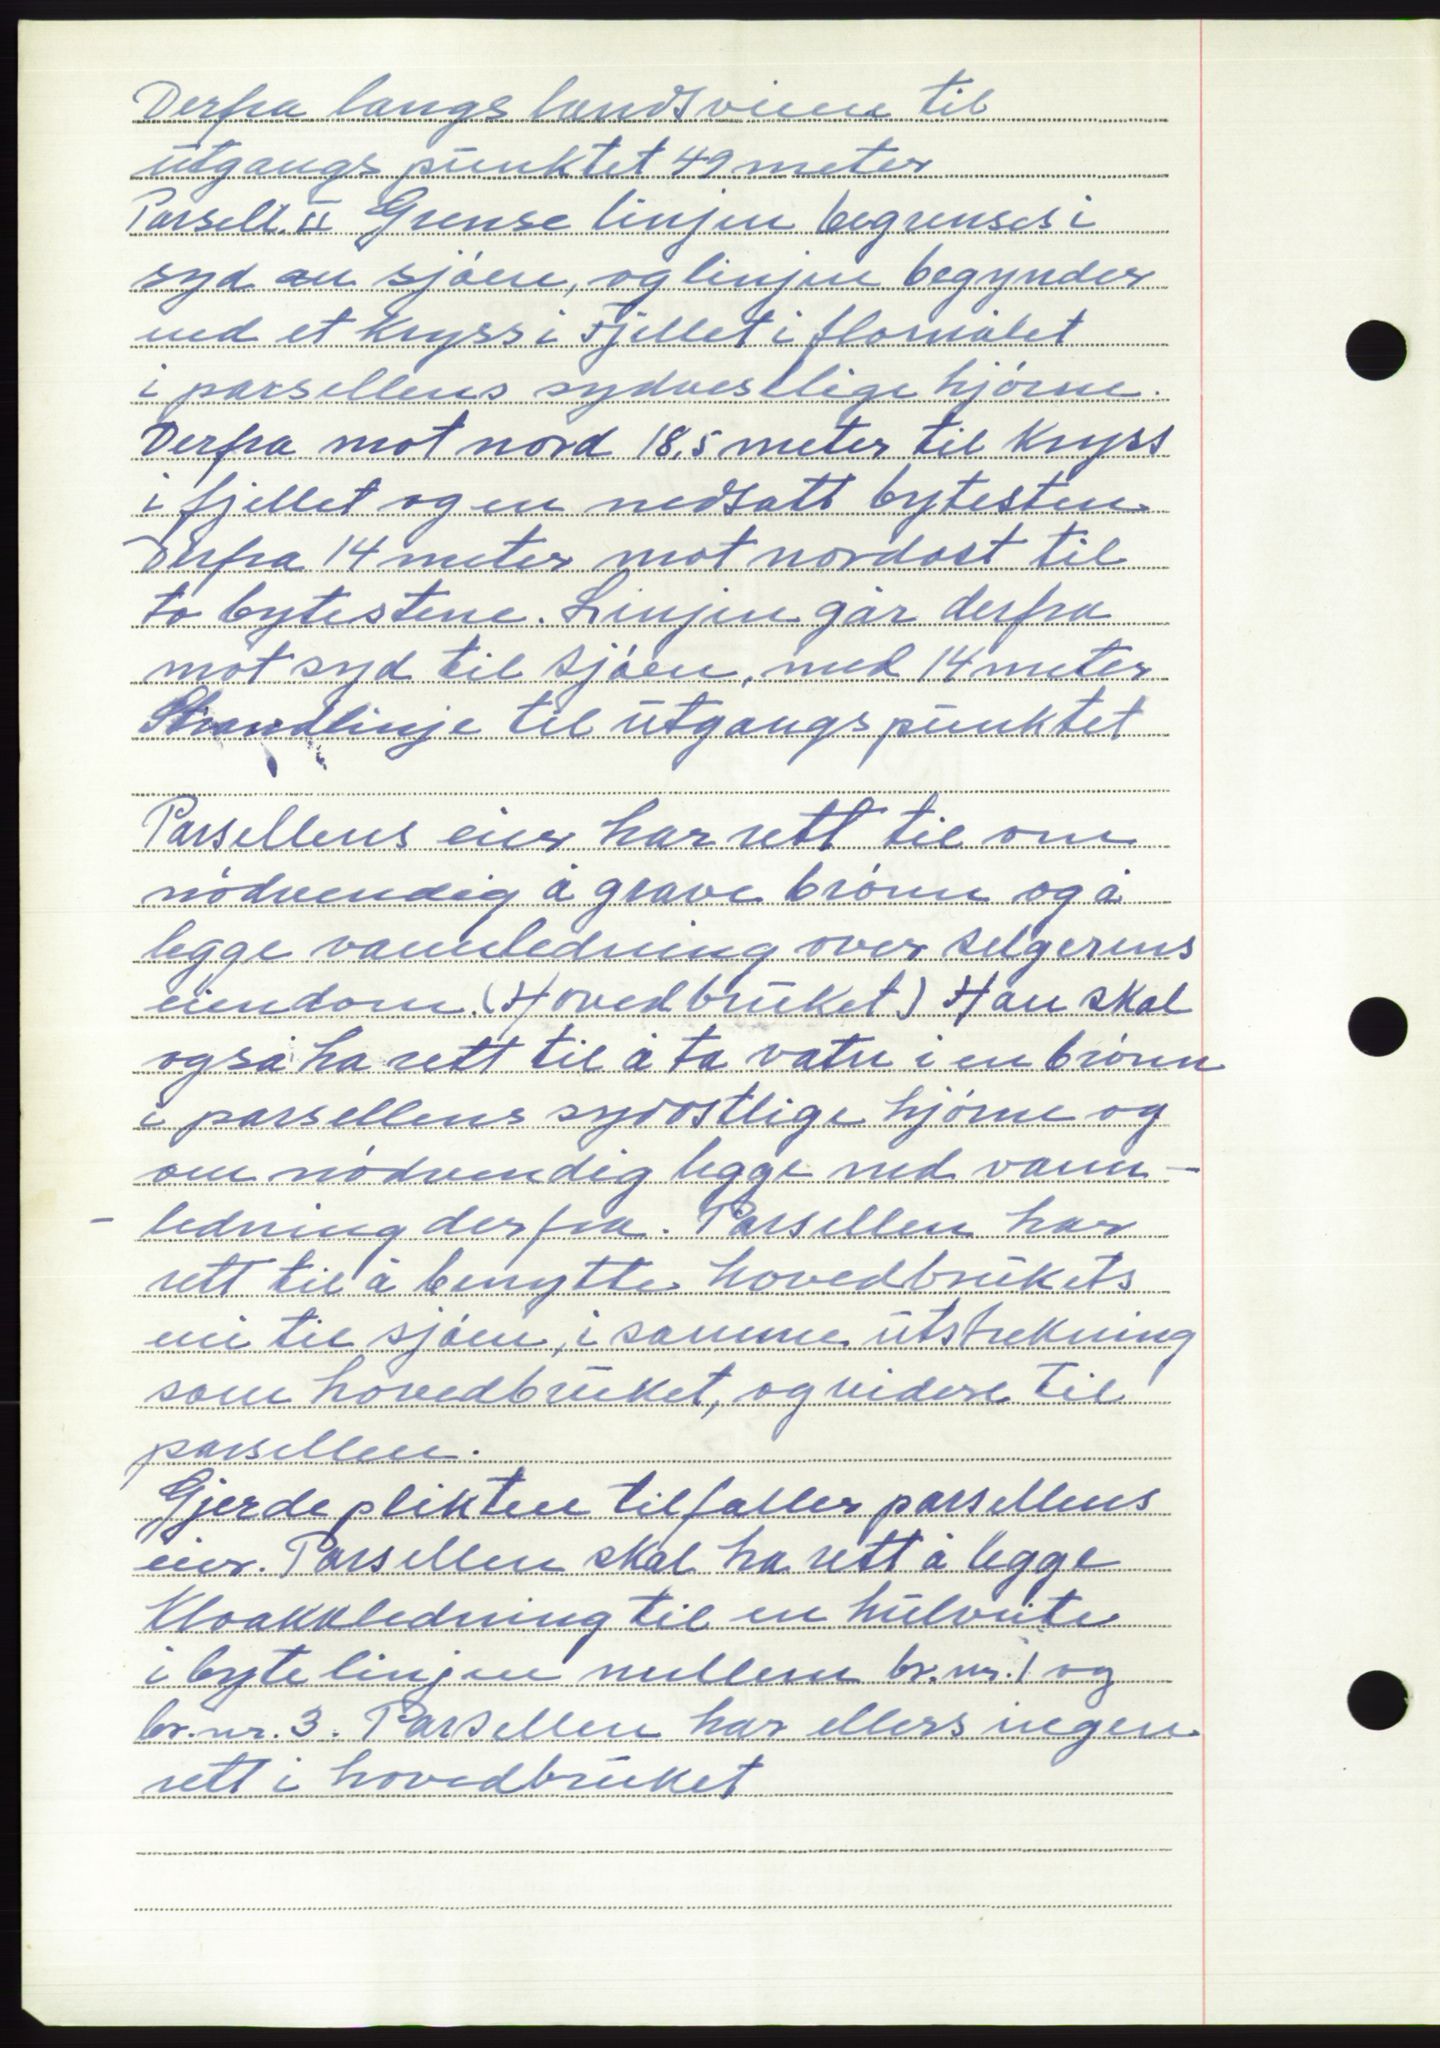 Derfra langs landsveien til
utgangspunktet 49 meter
Parsell. II Grense linjen begrenses i
syd av sjøen, og linjen begynder
ved et kryss i Fjellet i flomålet
i parsellens sydvestlige hjørne.
Derfra mot nord 18,5 meter til kryss
i fjellet og en nedsatt bytesten.
Derfra 14 meter mot nordost til
to bytestene. Linjen går derfra
mot syd til sjøen, med 14 meter
Strandlinje til utgangspunktet
Parsellens eier har rett til om
nödvendig å grave brönn og å
legge vannledning over selgerens
eiendom. (Hovedbruket) Han skal
også ha rett til å ta vatn i en brönn
i parsellens sydostlige hjørne og
om nödvendig legge ned vann-
- ledning derfra. Parsellen har
rett til å benytte hovedbrukets
vei til sjøen, i samme utstrekning
som hovedbruket, og videre til
parsellen.
Gjerdeplikten tilfaller parsellens
eier. Parsellen skal ha rett å legge
Kloakkledning til en hulveite
i bytelinjen mellem br. nr. 1 og
br. nr. 3. Parsellen har ellers ingen
rett i hovedbruket